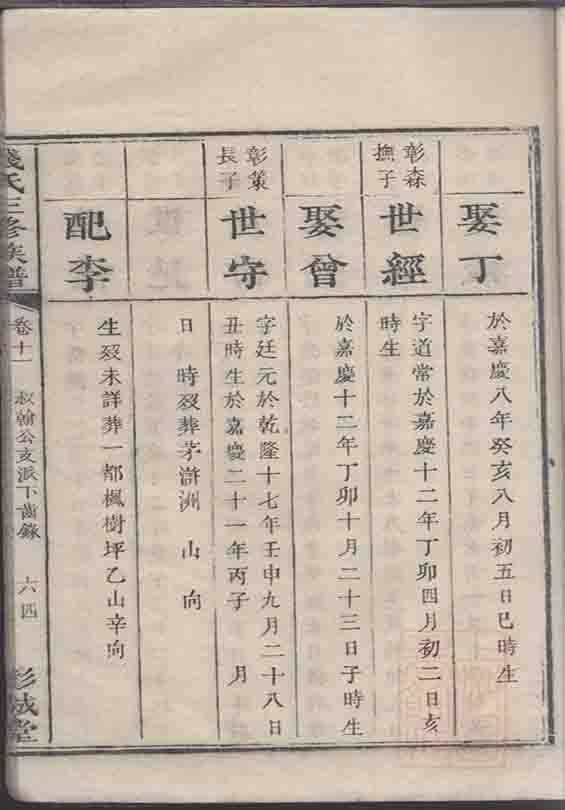 娶丁
於嘉慶八年癸亥八月初五日巳時生
彰森
撫子
世經
字道常於嘉慶十二年丁卯四月初二日亥
時生
娶曾
於嘉慶十二年丁卯十月二十三日子時生
彰策
長子
世守
字廷元於乾隆十七年壬申九月二十八日
丑時生於嘉慶二十一年丙子 月
日 時歿葬茅滸洲 山 向
配李
生歿未詳葬一都楓樹坪乙山辛向
錢氏三修族譜
卷十一 叔翰公支派下齒錄 六四 彭城堂